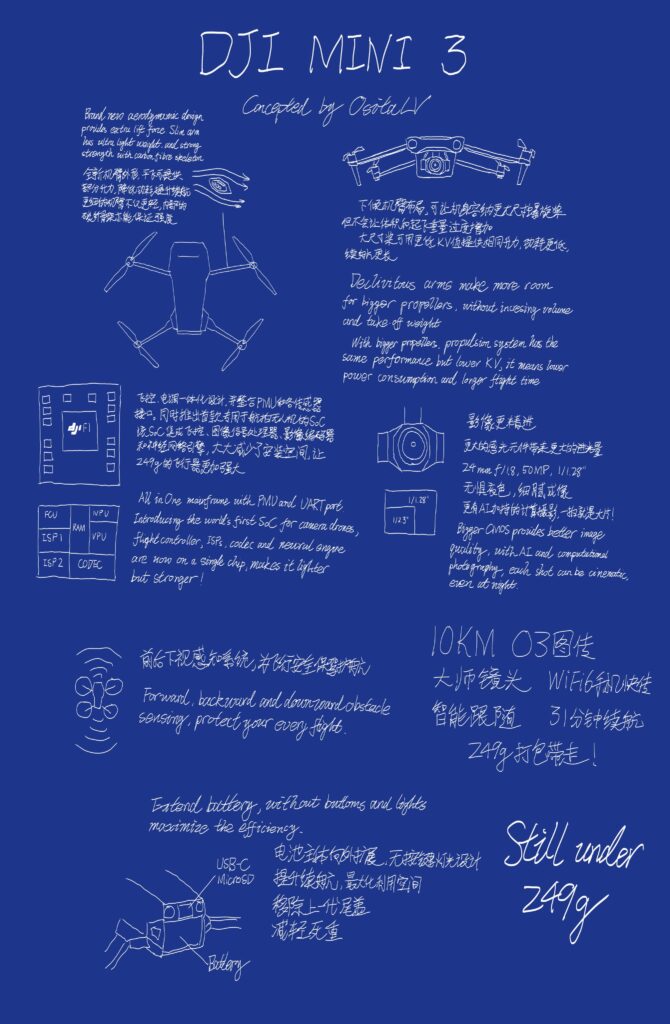 DJI MINI 3
Concepted by OsitaLV
Brand new aerodynamic design
provides extra life force Slim arm
has ultra light weight and strong
strength with carbon fibre skeleton
下倾机臂布局,可让机身容纳更大尺寸螺旋桨
但不会让体积和起飞重量过度增加
大尺寸桨可用更低KV值提供相同升力,功耗更低,
续航更长
Declivitous arms make more room
for bigger propellers, without
volume
and take off weight
With bigger propellers, propulsion system has the
same performance but lower KV, it means lower
power consumption and longer flight time
dji F1
飞控、电源一体化设计,并整合PMU和各传感器
接口。同时推出首款专用于航拍无人机的SoC
该SoC集成飞控、图像信号处理器、影像编码器
和神经网络引擎,大大减少了安装空间,让
249g的飞行器更加强大
FCU
RAM
NPU
ISP1
VPU
ISP2
CODEC
All in One mainframe with PMU and UART port
Introducing the world's first SoC for camera drones,
flight controller, ISPs, codec and neural engine
are now on a single chip, makes it lighter
but stronger!
影像更精进
更大的感光元件带来更大的进光量
24mm f/1.8, 50MP, 1/1.28"
无惧夜色,细腻成像
更有AI加持的计算摄影,一拍就是大片!
1/1.28"
1/2.3"
Bigger CMOS provides better image
quality, with AI and computational
photography, each shot can be cinematic,
even at night.
前后下视感知系统,为飞行安全保驾护航
Forward, backward and downward obstacle
sensing, protect your every flight.
10KM O3图传
大师镜头 WiFi6手机快传
智能跟随 31分钟续航
249g打包带走!
Extend battery, without buttons and lights
maximize the efficiency.
电池主体向外扩展,无按键灯光设计
提升续航,最大化利用空间
移除上一代尾盖
减轻死重
USB-C
MicroSD
Battery
Still under
249g